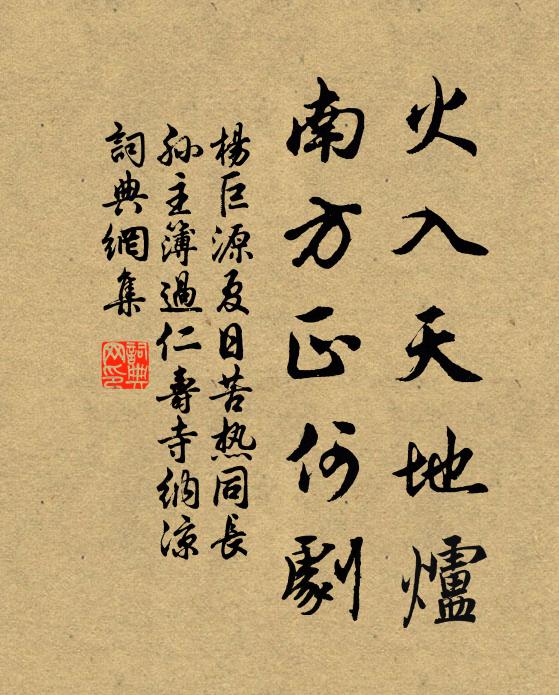 火入天地爐
南方正何劇
楊巨源夏日苦热同長
孫主簿過仁壽寺納凉
詞典網集
詞典
网印